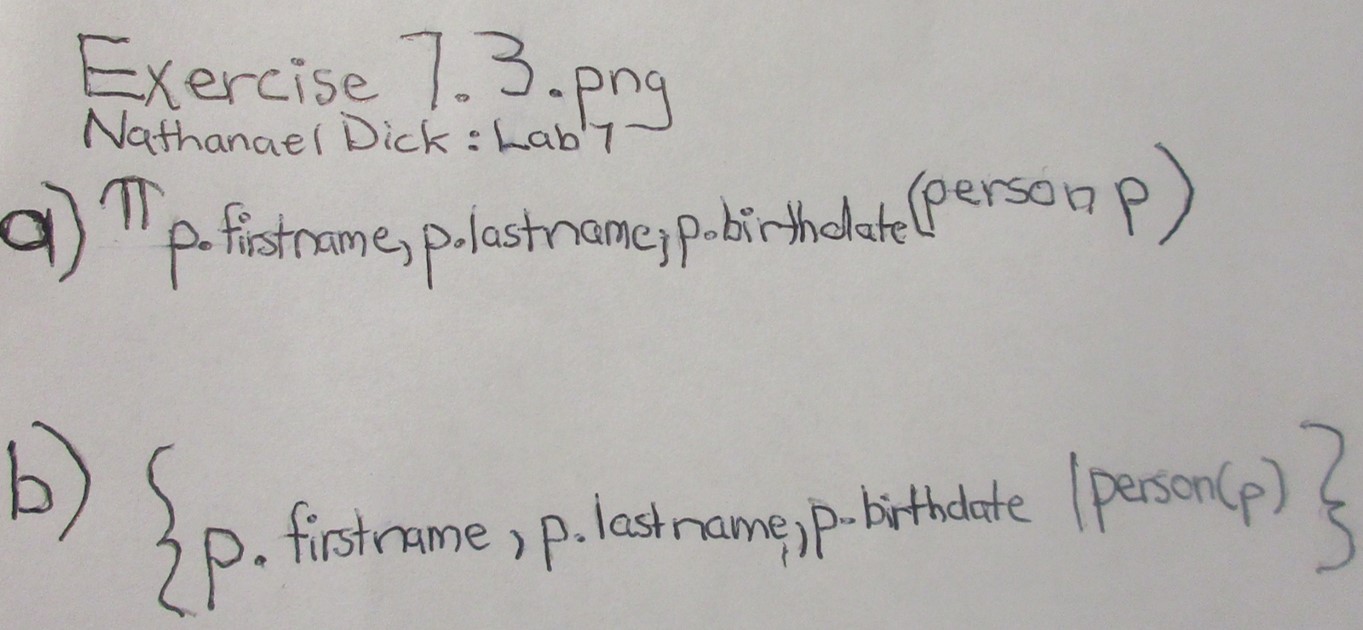 Exercise 7.3.png
Nathanael Dick : Lab 7
a) π p.firstname, p.lastname, p.birthdate (person p)
b) { p.firstname, p.lastname, p.birthdate | person(p) }